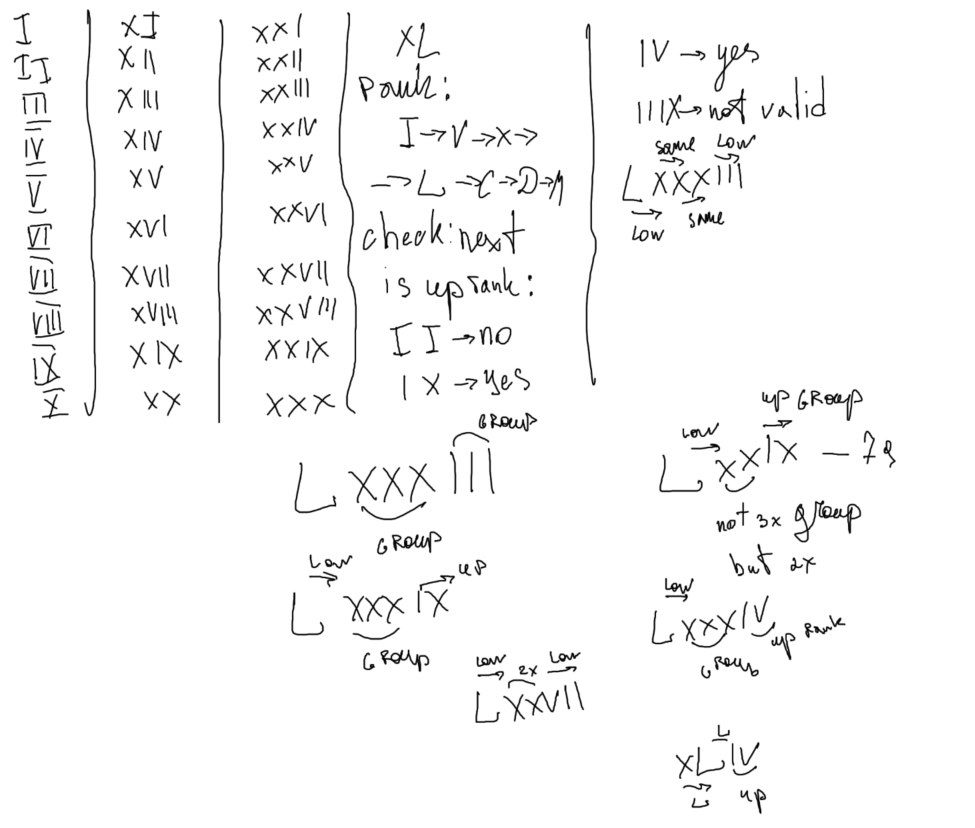 I
II
III
IV
V
VI
VII
VIII
IX
X
XI
XII
XIII
XIV
XV
XVI
XVII
XVIII
XIX
XX
XXI
XXII
XXIII
XXIV
XXV
XXVI
XXVII
XXVIII
XXIX
XXX
XL
rank:
I→V→X→
→L→C→D→M
check: next
is up rank:
I I →no
I X →yes
IV → yes
IIIX→not valid
same Low
LXXXIII
Low same
GROUP
L XXX III
GROUP
Low up
L XXX IX
GROUP
Low 2x Low
LXXVII
up GROUP
Low
L XX IX — 79
not 3x group
but 2x
Low
LXXXIV
up rank
GROUP
L
XL IV
L up